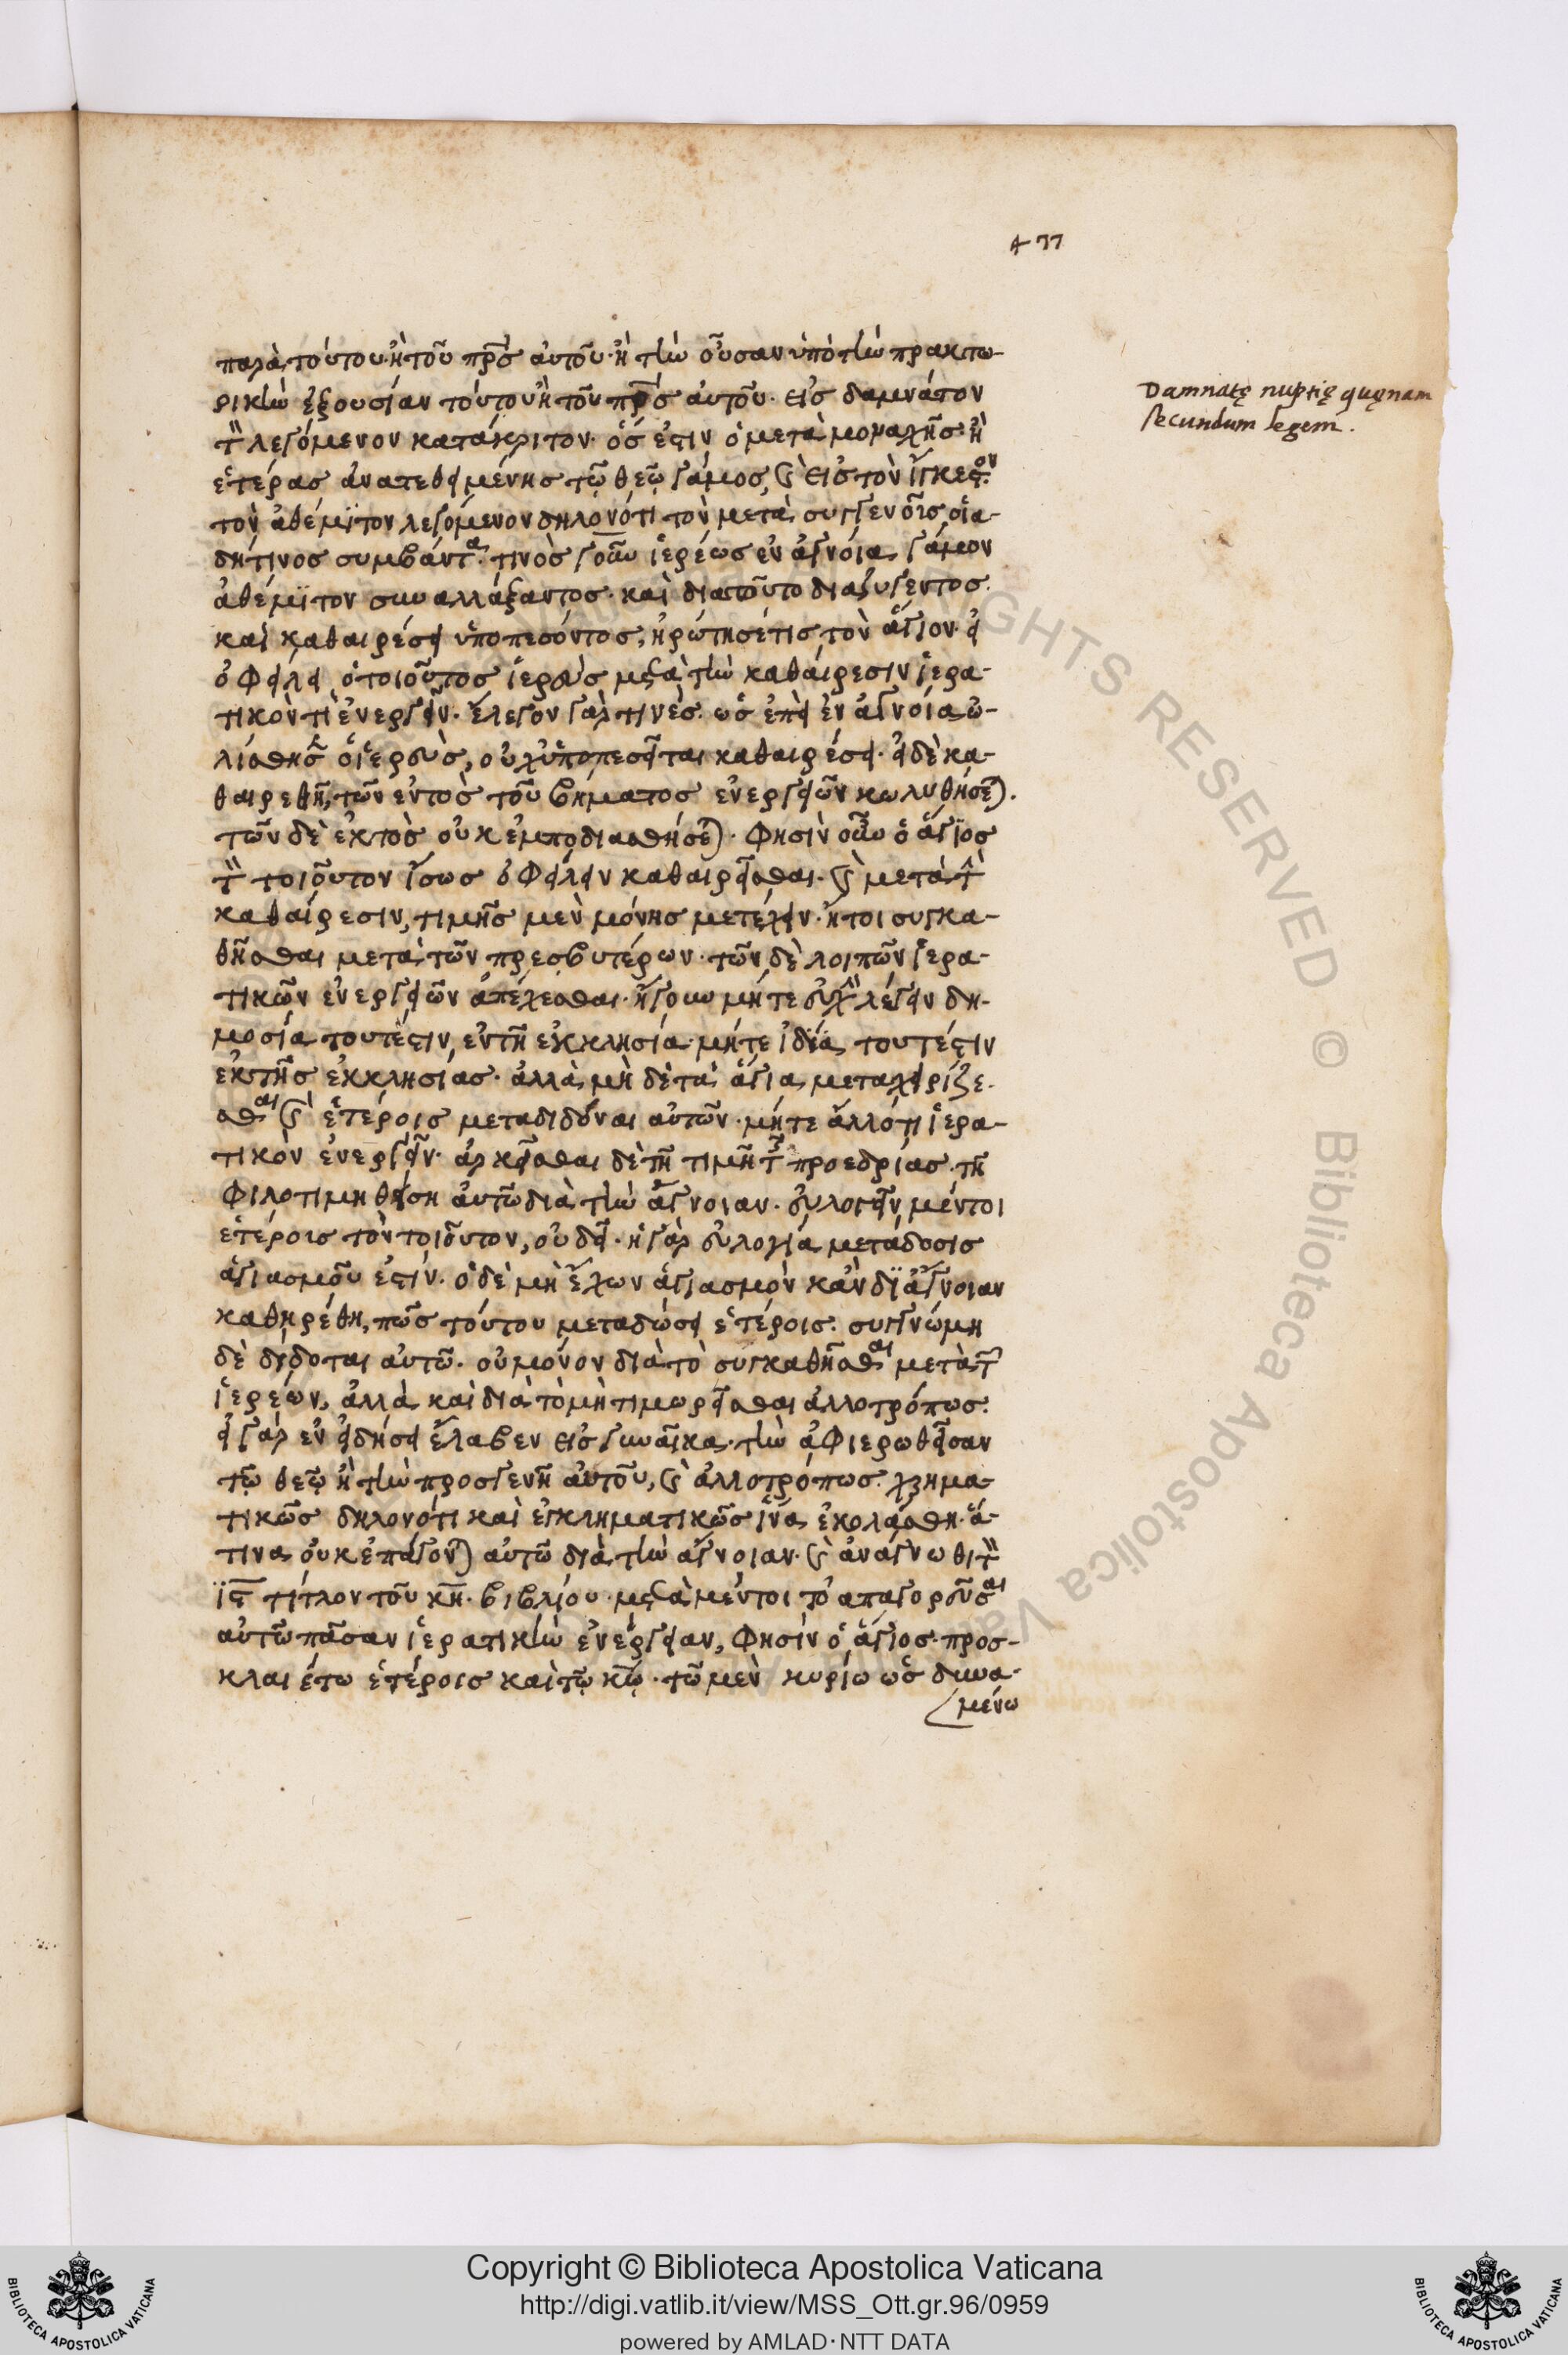 477
παρὰ τούτου· ἢ τοῦ πρ̅ς αὐτοῦ· ἢ τὴν οὖσαν ὑπὸ τὴν πρακτω-
ρικὴν ἐξουσίαν τούτου ἢ τοῦ πρ̅ς αὐτοῦ· εἰς δαμνάτον
τὸν λεγόμενον κατάκριτον· ὅς ἐστιν ὁ μετὰ μοναχῆς· ἢ
ἑτέρας ἀνατεθειμένης τῷ θεῷ γάμος, καὶ εἰς τὸν ἴγκεστον
τὸν ἀθέμϊτον λεγόμενον δηλονότι τὸν μετὰ συγγενοῦς οἱα-
δήτινος συμβάντα· τινὸς γοῦν ἱερέως ἐν ἀγνοία γάμον
ἀθέμϊτον συναλλάξαντος· καὶ διατοῦτο διαζυγέντος·
καὶ καθαιρέσει ὑποπεσόντος, ἠρώτησέ τις τὸν ἅγιον· εἰ
ὀφείλει ὁ τοιοῦτος ἱερεὺς μετὰ τὴν καθαίρεσιν ἱερα-
τικὸν τὶ ἐνεργεῖν· ἔλεγον γάρ τινες· ὡς ἐπεὶ ἐν ἀγνοία ὠ-
λίσθησεν ὁ ἱερεὺς, οὐχ ὑποπεσεῖται καθαιρέσει· εἰ δὲ κα-
θαιρεθῆ, τῶν ἐντὸς τοῦ βήματος ἐνεργειῶν κωλυθήσεται·
τῶν δὲ ἐκτὸς οὐκ ἐμποδισθήσεται· Φησὶν οὖν ὁ ἅγϊος
τὸν τοιοῦτον ἴσως ὀφείλειν καθαιρεῖσθαι· καὶ μετὰ τὴν
καθαίρεσιν, τιμῆς μὲν μόνης μετέχειν· ἤτοι συγκα-
θῆσθαι μετὰ τῶν πρεσβυτέρων· τῶν δὲ λοιπῶν ἱερα-
τικῶν ἐνεργειῶν ἀπέχεσθαι· ἤγουν μήτε εὐχὴν λέγειν δη-
μοσία τουτέστιν, ἐν τῆ ἐκκλησία· μήτε ἰδία τουτέστιν
ἐκτῆς ἐκκλησίας· ἀλλὰ μὴ δὲ τὰ ἅγια μεταχειρίζε-
σθαι καὶ ἑτέροις μεταδιδόναι αὐτῶν· μήτε ἄλλό τι ἱερα-
τικὸν ἐνεργεῖν· ἀρκεῖσθαι δὲ τῆ τιμῆ τῆς προεδρίας· τῆ
φιλοτιμηθείση αὐτῶ διὰ τὴν ἄγνοιαν· εὐλογεῖν μέντοι
ἑτέροις τὸν τοιοῦτον, οὐ δεῖ· ἡ γὰρ εὐλογία μετάδοσις
ἁγιασμοῦ ἐστίν· ὁ δὲ μὴ ἔχων ἁγιασμὸν κἂν δϊ ἄγνοιαν
καθηρέθη, πῶς τούτου μεταδώσει ἑτέροις· συγγνώμη
δὲ δίδοται αὐτῶ· οὐ μόνον διὰ τὸ συγκαθῆσθαι μετὰ τῶν
ἱερέων, ἀλλὰ καὶ διὰ τὸ μὴ τιμωρεῖσθαι ἀλλοτρόπως·
εἰ γὰρ ἐν εἰδήσει ἔλαβεν εἰς γυναῖκα· τὴν ἀφιερωθεῖσαν
τῷ θεῷ ἢ τὴν προσγενῆ αὐτοῦ, καὶ ἀλλοτρόπως· χρημα-
τικῶς δηλονότι καὶ ἐγκληματικῶς ἵνα ἐκολάσθη· ἅ-
τινα οὐκ ἐπάγονται αὐτῶ διὰ τὴν ἄγνοιαν· καὶ ἀνάγνωθι τὸν
ϊϛ̅ τίτλον τοῦ κη̅· βιβλίου· μετὰ μέντοι τὸ ἀπαγορεῦσαι
αὐτῶ πᾶσαν ἱερατικὴν ἐνέργειαν, Φησὶν ὁ ἅγιος· προσ-
κλαιέτω ἑτέροις καὶ τῷ κ̅ῳ· τῶ μὲν κυρίω ὡς δυνα-
μένω
Damnatę nuptię quęnam
secundum legem.
RIGHTS RESERVED © Biblioteca Apostolica Vaticana
Copyright © Biblioteca Apostolica Vaticana
http://digi.vatlib.it/view/MSS_Ott.gr.96/0959
powered by AMLAD·NTT DATA
BIBLIOTECA APOSTOLICA VATICANA
BIBLIOTECA APOSTOLICA VATICANA